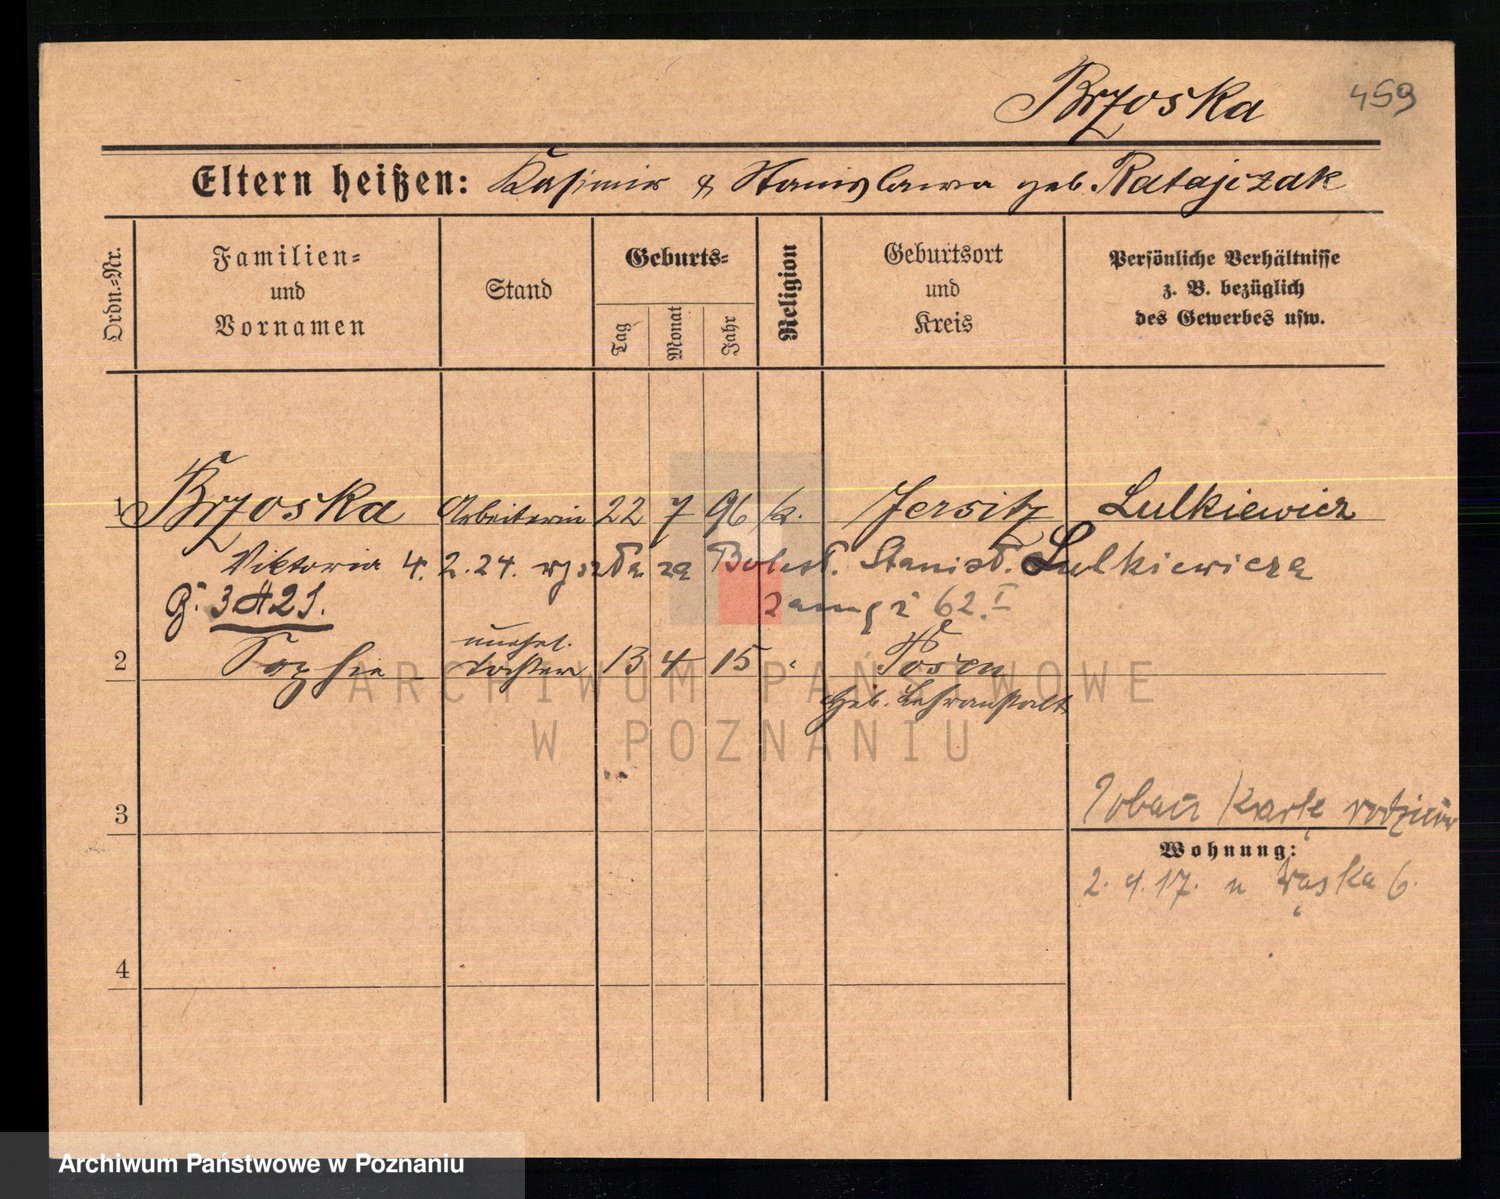 Brzoska 459
Eltern heißen: Kasimir & Stanislawa geb. Ratajczak
Ordn.-Nr.
Familien- und Vornamen
Stand
Geburts-
Tag
Monat
Jahr
Religion
Geburtsort und Kreis
Persönliche Verhältnisse z. B. bezüglich des Gewerbes usw.
1 Brzoska Arbeiterin 22 7 96 k. Jersitz Lulkiewicz
Viktoria 4. 2. 24. wyszła za Bolesł. Stanisł. Lulkiewicza
G. 3421. 62. I
unehel.
2 Sophie Tochter 13 4 15 Posen
Heb. Lehranstalt
3
Zobacz kartę rodziców
Wohnung:
2. 4. 17. u Wąska 6.
4
ARCHIWUM PAŃSTWOWE
W POZNANIU
Archiwum Państwowe w Poznaniu